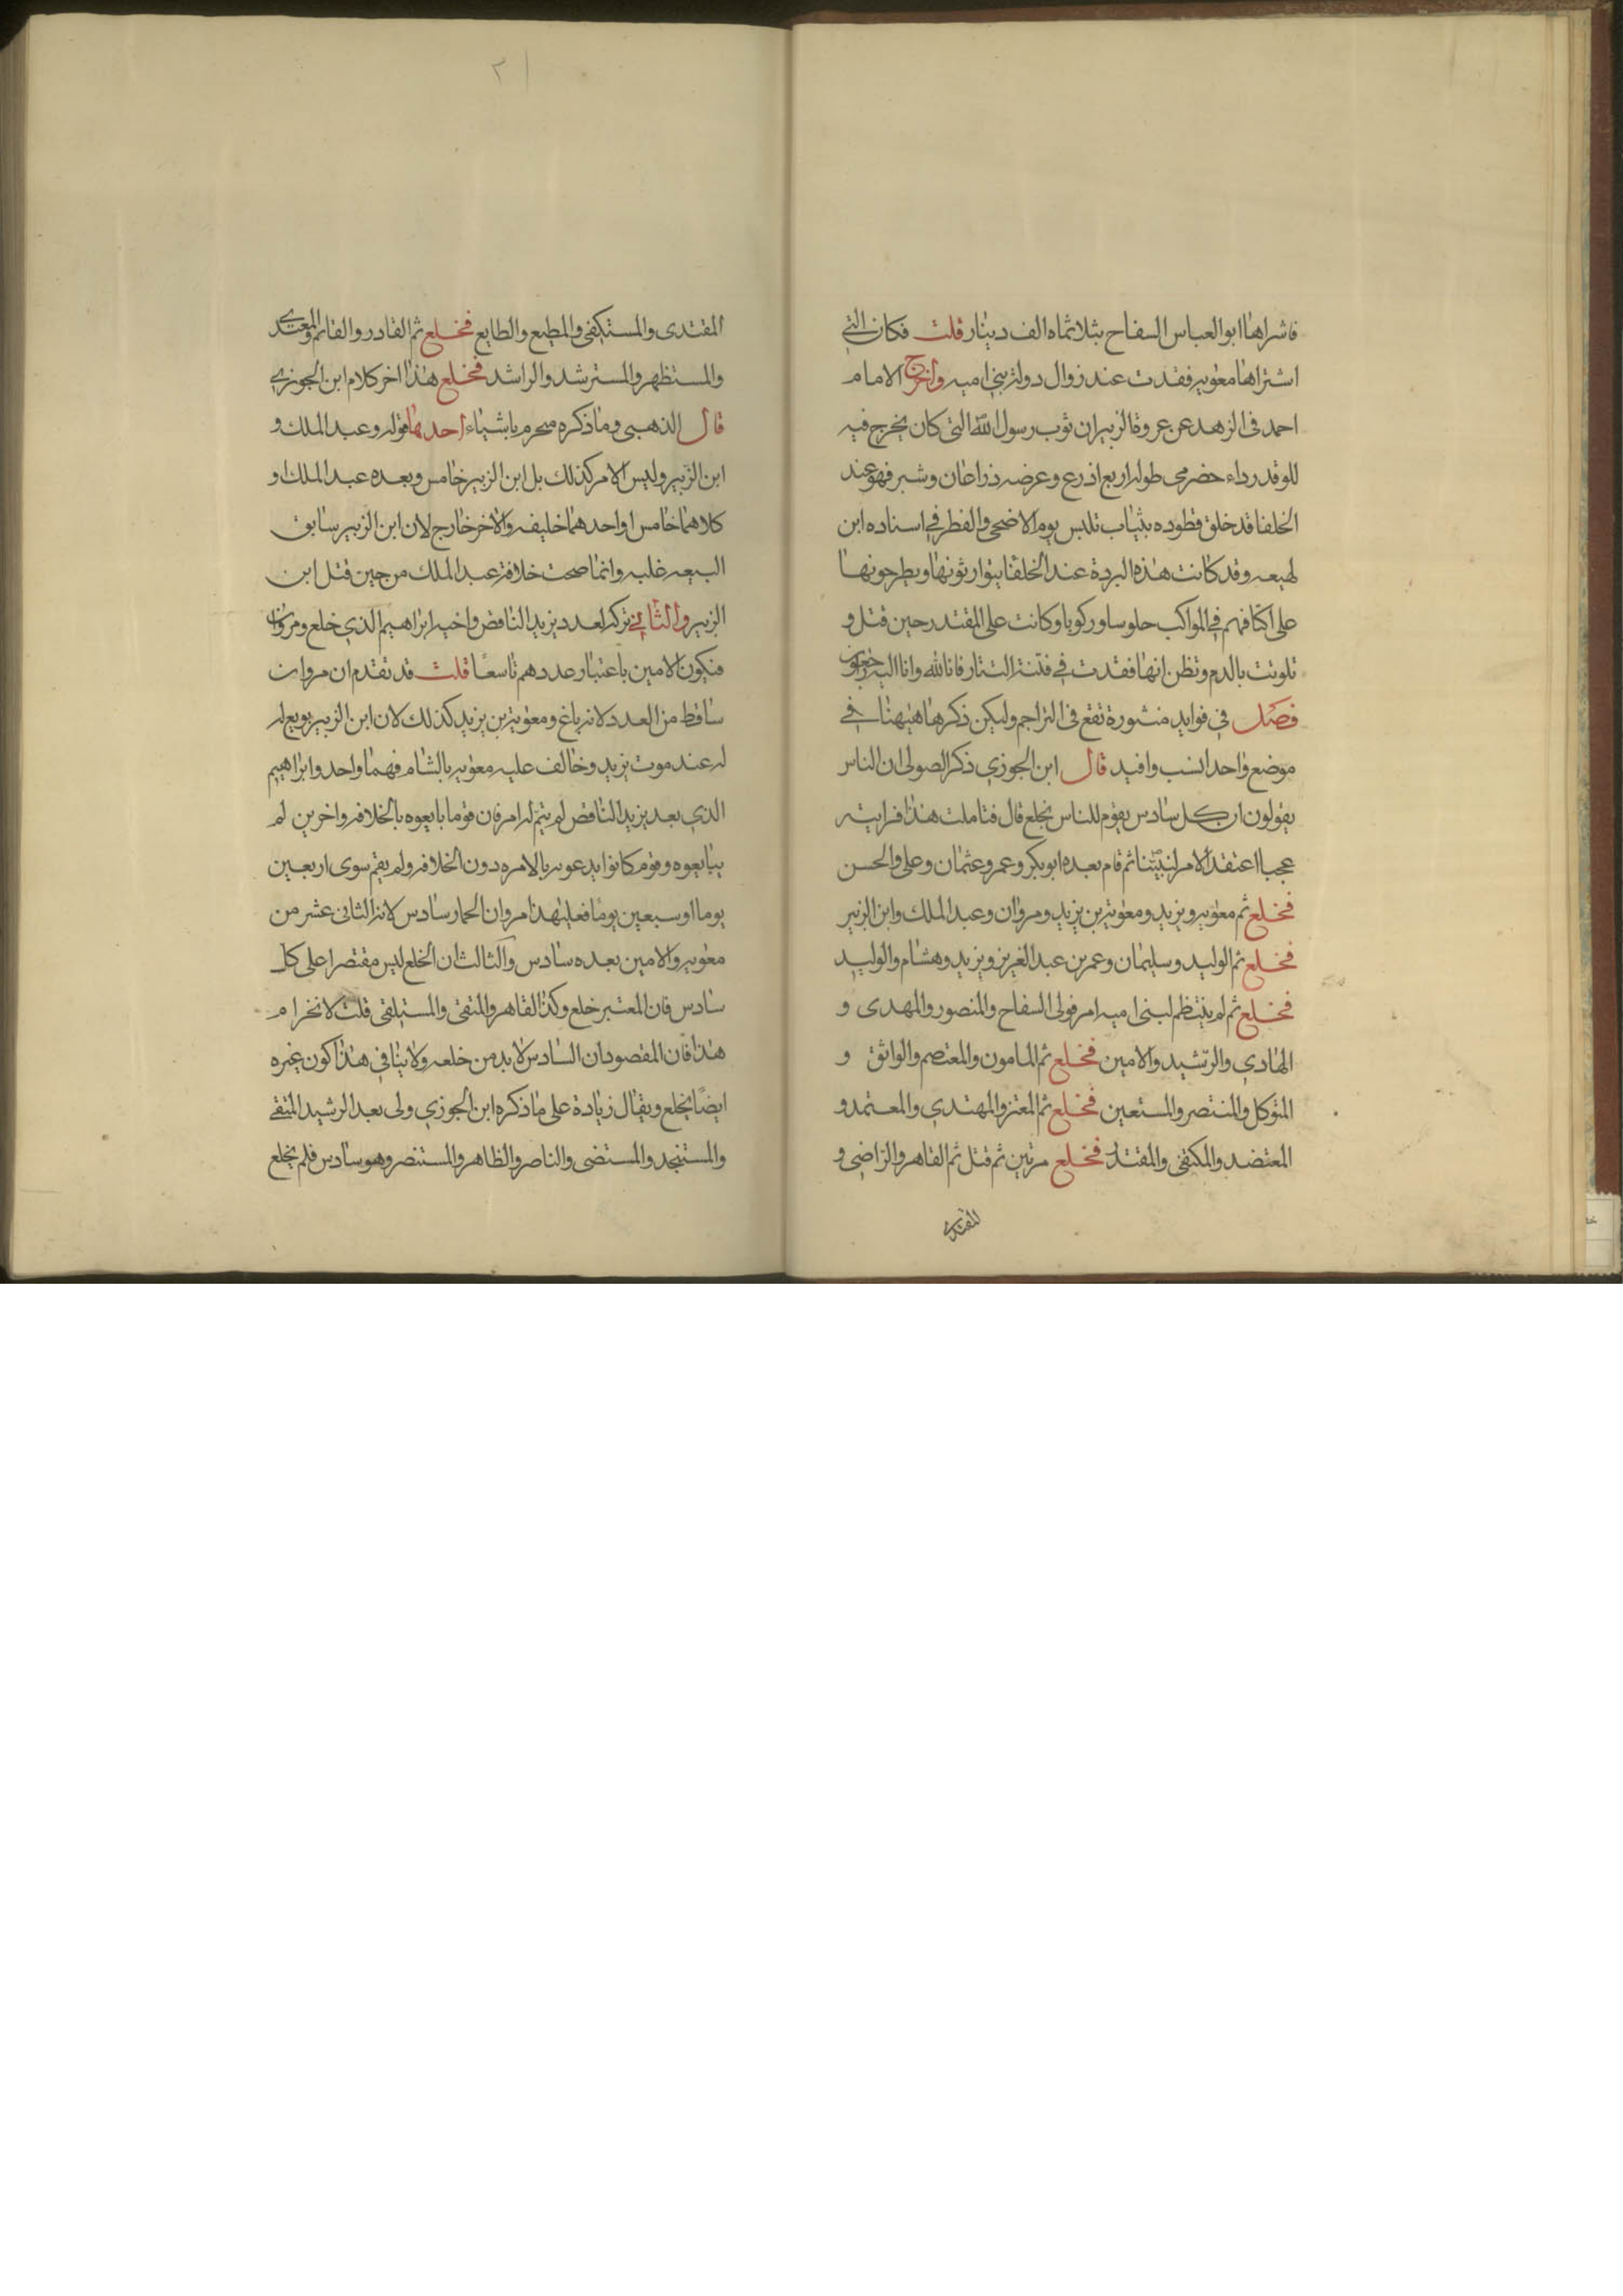 فاشراها ابو العباس السفاح بثلاثماه الف دينار قلت فكان التى
اشتراها معويه فقدت عند زوال دولة بنى اميه واخرج الامام
احمد فى الزهد عن عروة الزبير ان ثوب رسول الله التى كان يخرج فيه
للوفد رداء حضرمى طوله اربع اذرع وعرضه ذراعان وشبر فهو عند
الخلفا قد خلق فطوده بثياب تلبس يوم الاضحى والفطر فى اسناده ابن
لهيعه وقد كانت هذه البردة عند الخلفا يتوارثونها ويطرحونها
على اكتافهم فى المواكب جلوسا وركوبا وكانت على المقتدر حين قتل و
تلوثت بالدم ونظن انها فقدت فى فتنة التتار فانا لله وانا اليه راجعون
فصل فى فوايد منشورة تقع فى التراجم وليكن ذكرها ههنا فى
موضع واحد انسب وافيد قال ابن الجوزى ذكر الصولى ان الناس
يقولون ان كل سادس يقوم للناس يخلع قال فتاملت هذا فرايته
عجبا اعتقد الامر لنبينا ثم قام بعده ابو بكر وعمر وعثمان وعلى والحسن
فخلع ثم معويه ويزيد ومعوية بن يزيد ومروان وعبد الملك وابن الزبير
فخلع ثم الوليد وسليمان وعمر بن عبد العزيز ويزيد وهشام والوليد
فخلع ثم لم ينتظم لبنى اميه امر فولى السفاح والمنصور والمهدى و
الهادى والرشيد والامين فخلع ثم المامون والمعتصم والواثق و
المتوكل والمنتصر والمستعين فخلع ثم المعتز والمهتدى والمعتمد و
المعتضد والمكتفى والمقتدر فخلع مرتين ثم قتل ثم القاهر والراضى و
المقتدى
٢١
المقتدى والمستكفى والمطيع والطايع فخلع ثم القادر والقائم والمقتدى
والمستظهر والمسترشد والراشد فخلع هذا اخر كلام ابن الجوزى
قال الذهبى وما ذكره منخرم باشياء احدها قوله وعبد الملك و
ابن الزبير وليس الامر كذلك بل ابن الزبير خامس وبعده عبد الملك او
كلاهما خامس او احدهما خليفه والاخر خارج لان ابن الزبير سابق
البيعه غلبه وانما صحت خلافة عبد الملك من حين قتل ابن
الزبير والثانى تركه لعدد يزيد الناقص واخيه ابراهيم الذى خلع ومروان
فيكون الامين باعتبار عددهم تاسعا قلت قد تقدم ان مروان
ساقط من العدد لانه باغ ومعوية بن يزيد كذلك لان ابن الزبير بويع له
له عند موت يزيد وخالف عليه معويه بالشام فهما واحد وابراهيم
الذى بعد يزيد الناقص لم يتم له امر فان قوما بايعوه بالخلافه واخرين لم
يبايعوه وقوم كانوا يدعونه بالامره دون الخلافه ولم يقم سوى اربعين
يوما او سبعين يوما فعلى هذا مروان الحمار سادس لانه الثانى عشر من
معويه والامين بعده سادس والثالث ان الخلع ليس مقتصرا على كل
سادس فان المعتبر خلع وكذا القاهر والمتقى والمستكفى قلت لا انخرام
هذا فان المقصود ان السادس لابد من خلعه ولا ينافى هذا كون غيره
ايضا يخلع ويقال زيادة على ما ذكره ابن الجوزى ولى بعد الرشيد المتقى
والمستنجد والمستضى والناصر والظاهر والمستنصر وهو سادس فلم يخلع